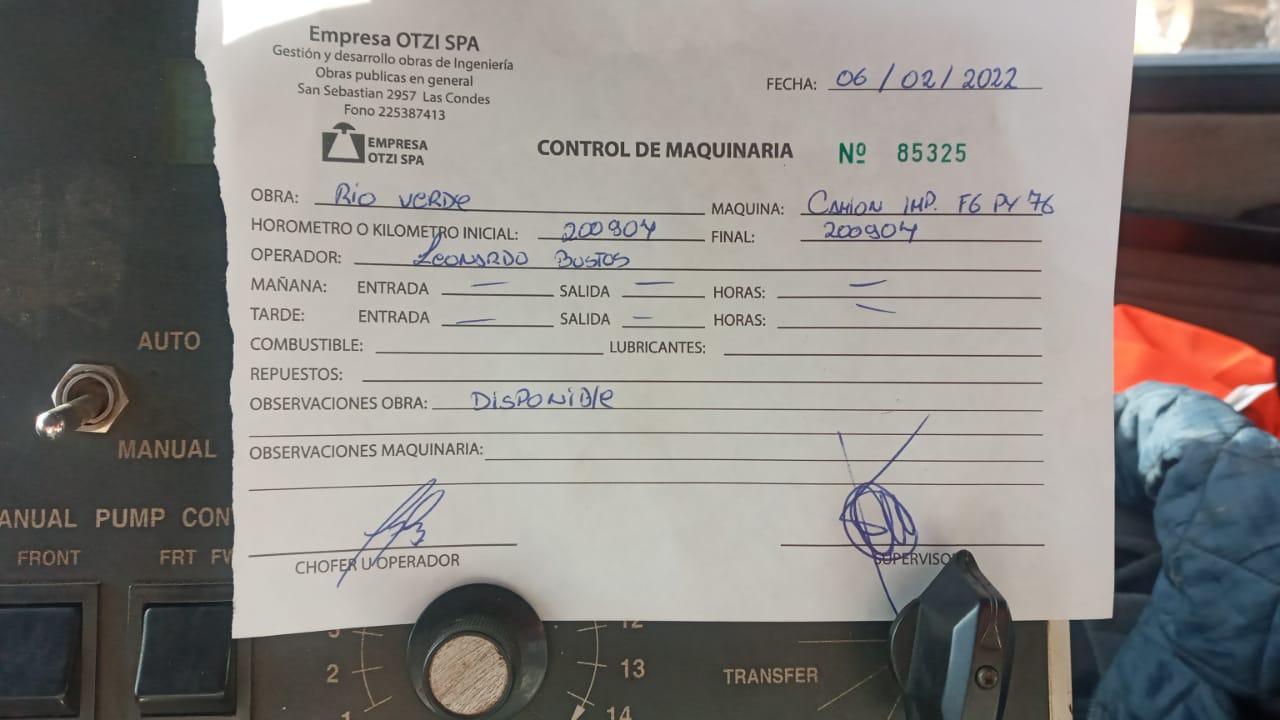 Empresa OTZI SPA
Gestión y desarrollo obras de Ingeniería
Obras publicas en general
San Sebastian 2957 Las Condes
Fono 225387413
FECHA: 06/02/2022
EMPRESA
OTZI SPA
CONTROL DE MAQUINARIA Nº 85325
OBRA: Rio Verde MAQUINA: CAMION IMP. FG PY 76
HOROMETRO O KILOMETRO INICIAL: 200904 FINAL: 200904
OPERADOR: Leonardo Bustos
MAÑANA: ENTRADA — SALIDA — HORAS: —
TARDE: ENTRADA — SALIDA — HORAS: —
COMBUSTIBLE: LUBRICANTES:
REPUESTOS:
OBSERVACIONES OBRA: Disponible
OBSERVACIONES MAQUINARIA:
CHOFER U OPERADOR SUPERVISO
AUTO
MANUAL
ANUAL PUMP CON
FRONT FRT FW
2
1
12
13
14
TRANSFER